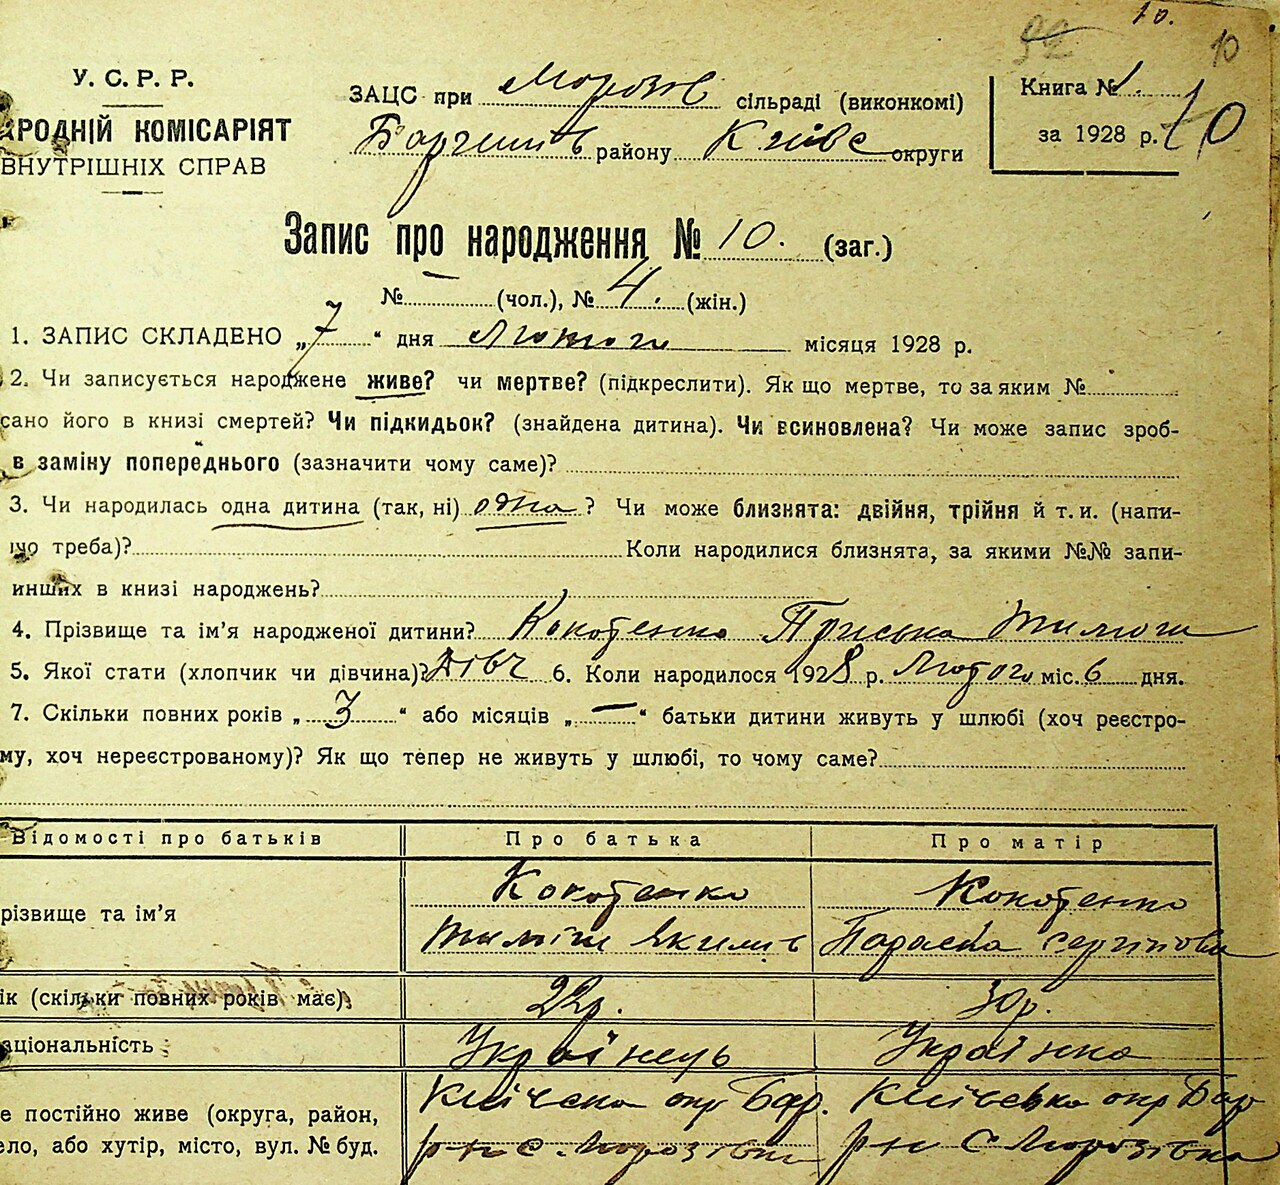 10.
92 10
У. С. Р. Р.
АРОДНІЙ КОМІСАРІЯТ
ВНУТРІШНІХ СПРАВ
ЗАЦС при Морозів сільраді (виконкомі)
району Київс округи
Книга № 1.
за 1928 р. 10
Запис про народження № 10. (заг.)
№ — (чол.), № 4. (жін.)
1. ЗАПИС СКЛАДЕНО „7“ дня Лютого місяця 1928 р.
2. Чи записується народжене живе? чи мертве? (підкреслити). Як що мертве, то за яким №
сано його в книзі смертей? Чи підкидьок? (знайдена дитина). Чи всиновлена? Чи може запис зроб-
в заміну попереднього (зазначити чому саме)?
3. Чи народилась одна дитина (так, ні) одна? Чи може близнята: двійня, трійня й т. и. (напи-
що треба)? Коли народилися близнята, за якими №№ запи-
инших в книзі народжень?
4. Прізвище та ім’я народженої дитини? Кокотенко Приська Тимоши
5. Якої стати (хлопчик чи дівчина)? дівч 6. Коли народилося 1928 р. Лютого міс. 6 дня.
7. Скільки повних років „3“ або місяців „—“ батьки дитини живуть у шлюбі (хоч реєстро-
му, хоч нереєстрованому)? Як що тепер не живуть у шлюбі, то чому саме?
Відомості про батьків Про батька Про матір
різвище та ім’я Кокотенко Кокотенко
Тиміш Якимів Параска Сергіповна
ік (скільки повних років має) 22р. 30р.
аціональність Українець Українка
е постійно живе (округа, район, Київська окр Бар. Київська окр Бар
ело, або хутір, місто, вул. № буд. р-н с. Морозівка р-н С Морозівка